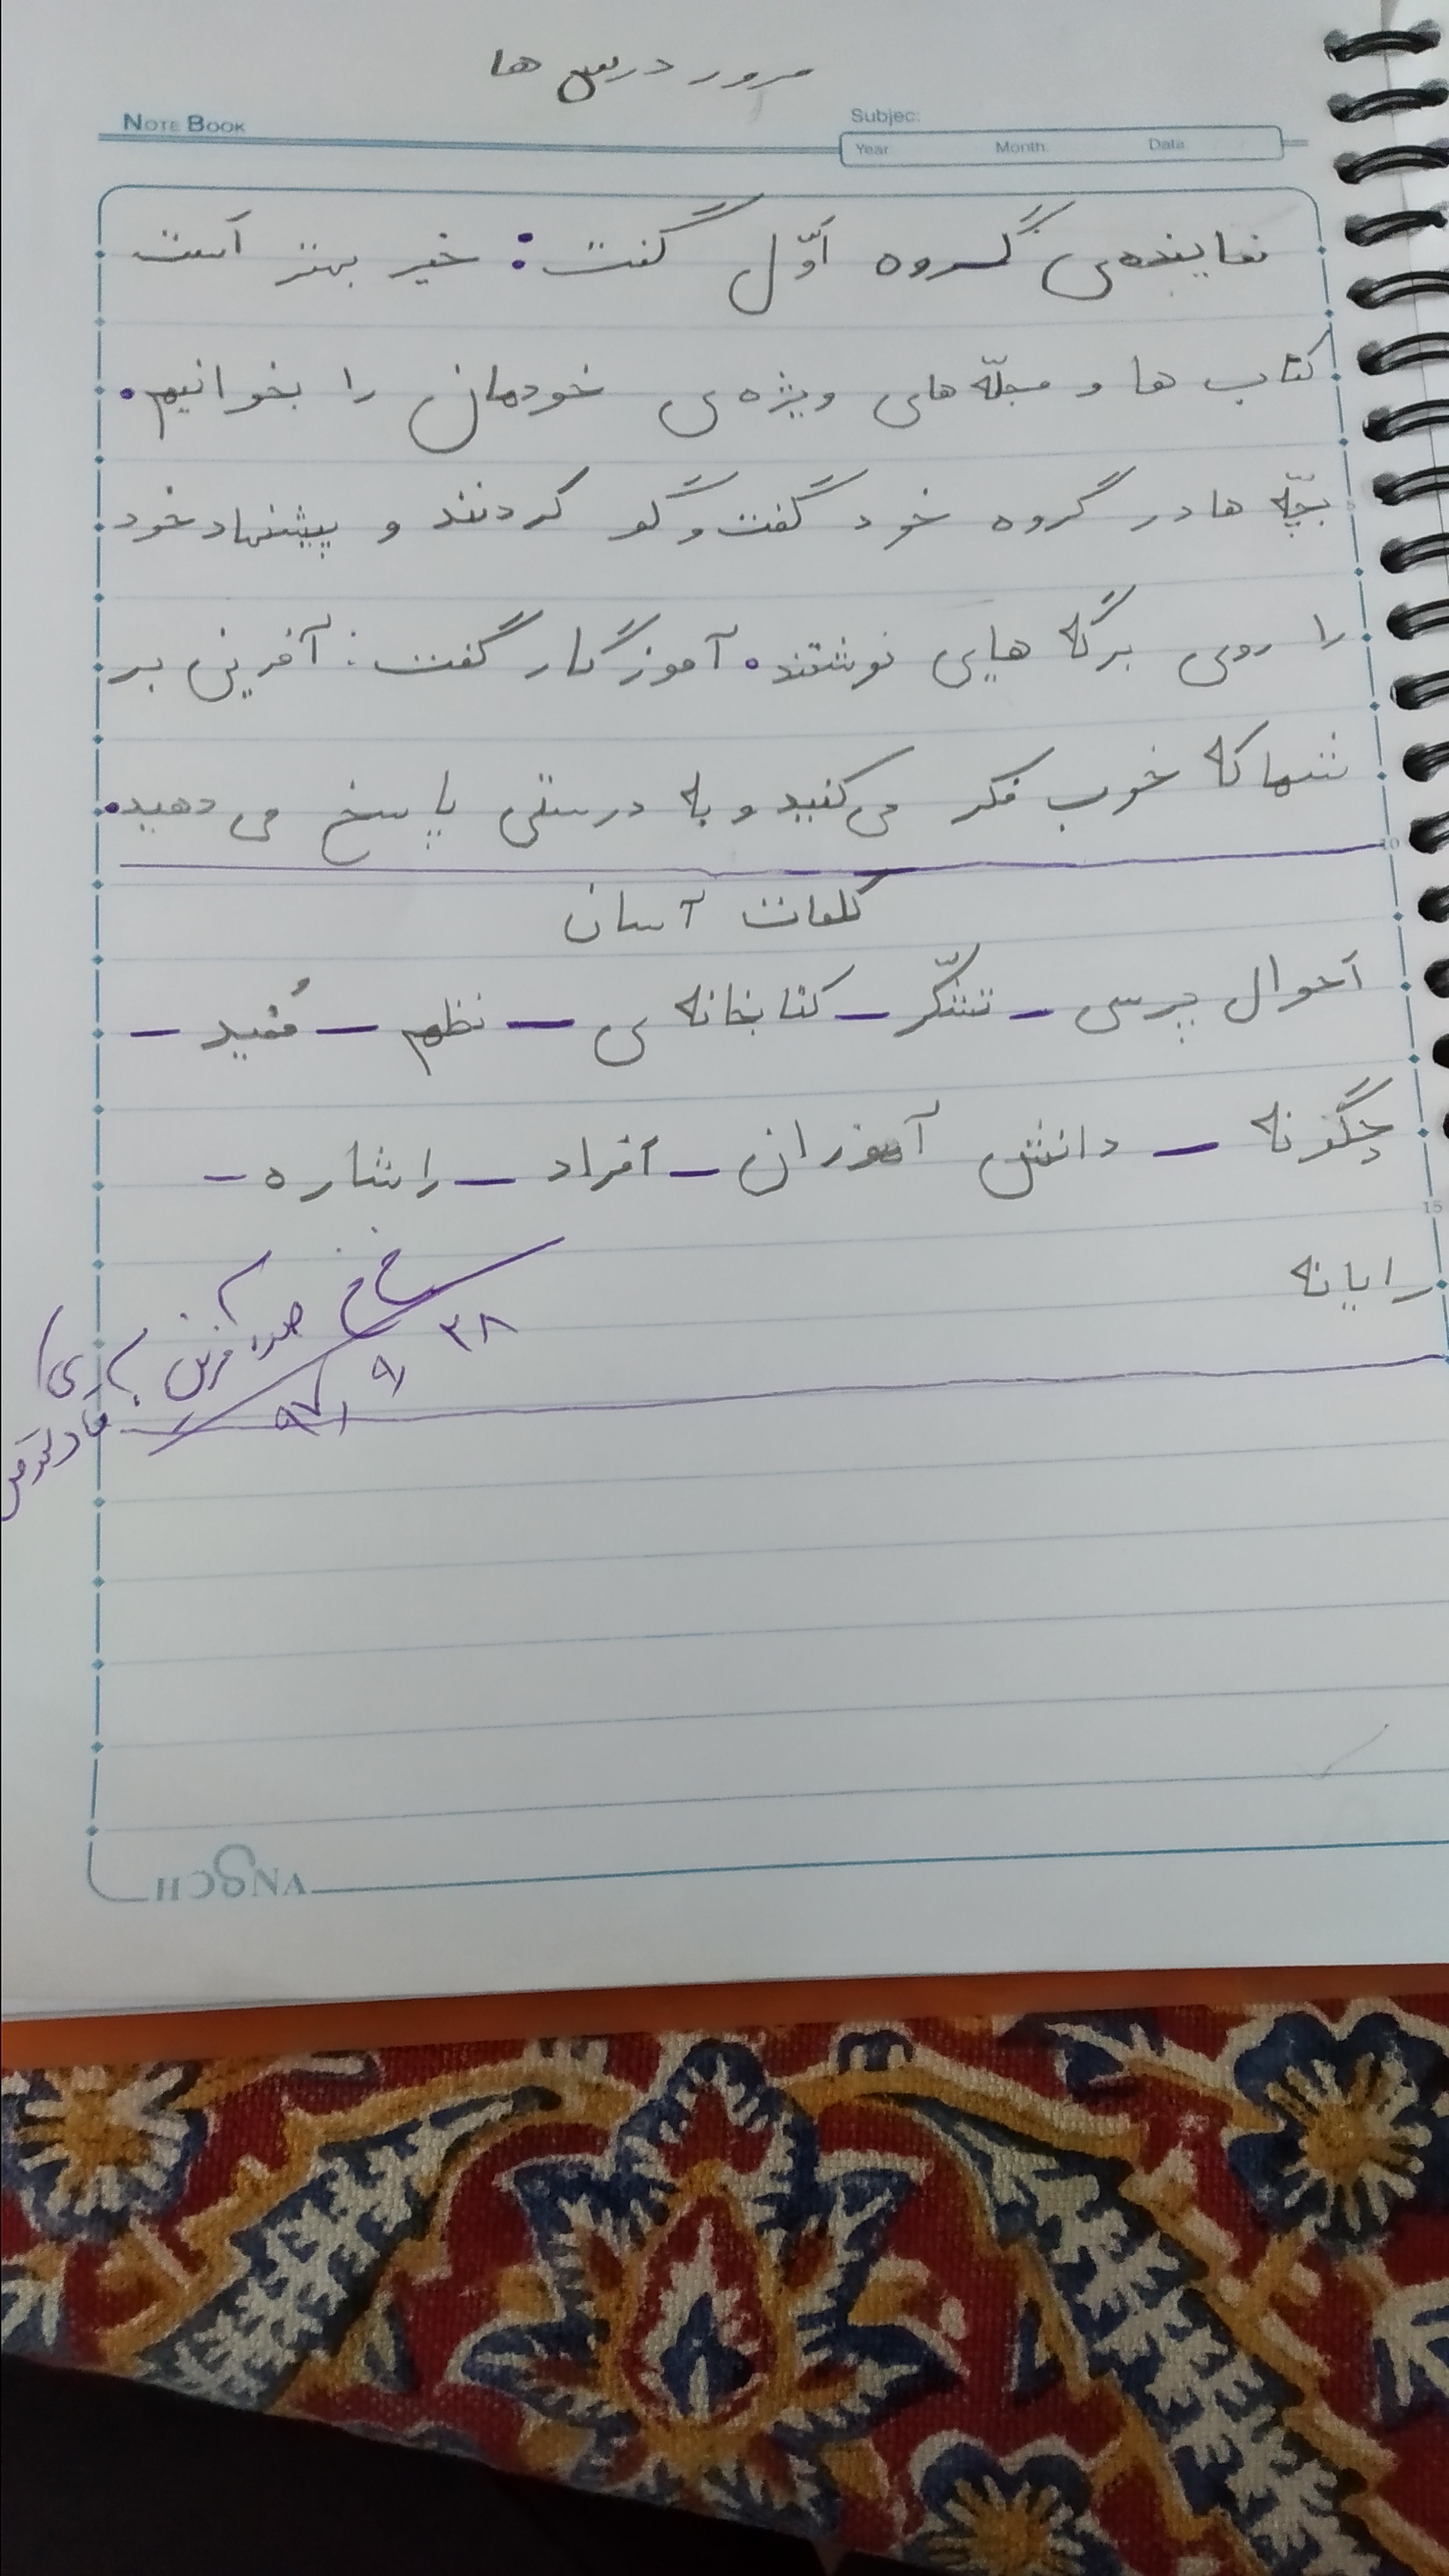 مرور درس ها
NOTE BOOK
Subjec:
Year Month: Data
نماینده‌ی گروه اَوّل گفت: خیر بهتر اَست
کتاب ها و مجلّه های ویژه ی خودمان را بخوانیم.
بچّه ها در گروه خود گفت و گو کردنند و پیشنهاد خود
را روی برگه هایی نوشتند. آموزگار گفت: آفرین بر
شما که خوب فکر می‌کنید و به درستی پاسخ می دهید.
10
کلمات آسان
اَحوال پرسی - تشکّر - کتابخانه ی - نظم - مُفید -
چگونه - دانش آموزان - اَفراد - اِشاره -
15
رایانه
۲۸
۹
۹۷